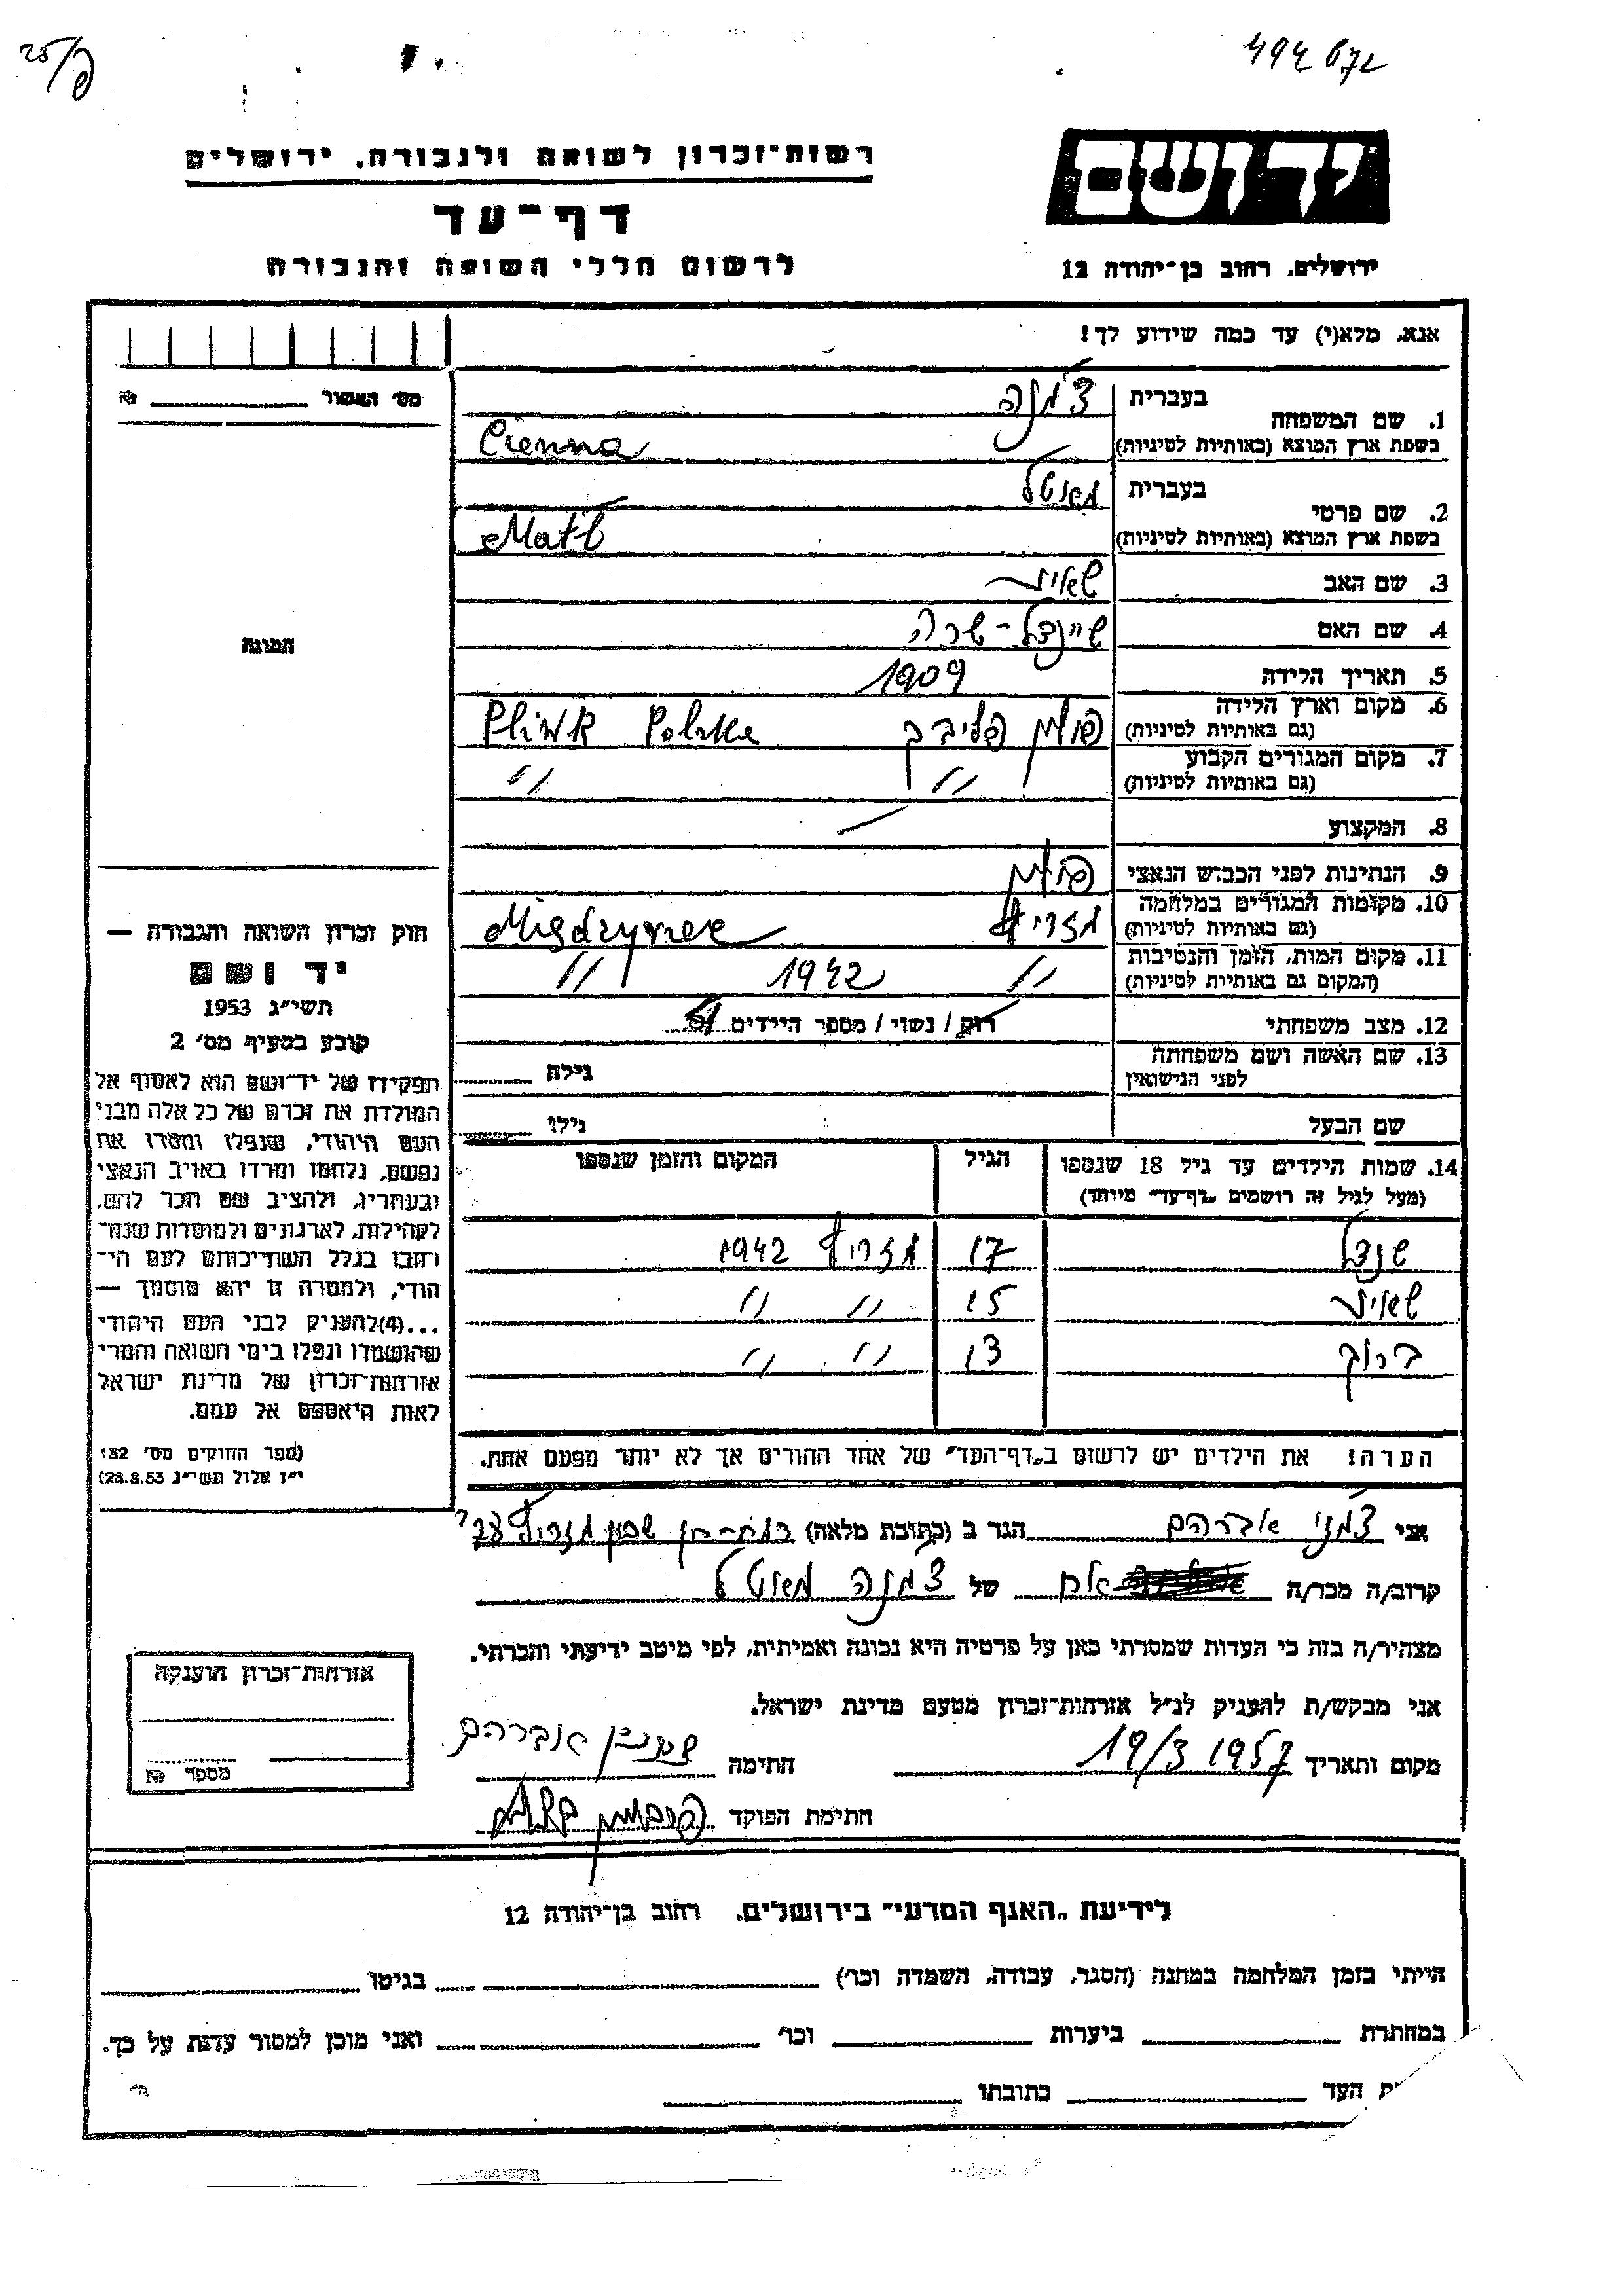 25/פ
494 672
רשות־זכרון לשואה ולגבורה, ירושלים
יד ושם
דף־עד
לרשום חללי השואה והגבורה
ירושלים, רחוב בן־יהודה 12
אנא, מלא(י) עד כמה שידוע לך!
מס׳ האשור № 
1. שם המשפחה
בעברית
בשפת ארץ המוצא (באותיות לטיניות)
Cienna
2. שם פרטי
בעברית
בשפת ארץ המוצא (באותיות לטיניות)
Matl
3. שם האב
4. שם האם שיינדל - שרה
5. תאריך הלידה 1909
6. מקום וארץ הלידה
(גם באותיות לטיניות)
פולין Plinsk Polska
7. מקום המגורים הקבוע
(גם באותיות לטיניות)
״ ״
8. המקצוע —
9. הנתינות לפני הכבוש הנאצי פולין
10. מקומות המגורים במלחמה
(גם באותיות לטיניות)
11. מקום המות, הזמן והנסיבות
(המקום גם באותיות לטיניות)
״ 1942 ״
12. מצב משפחתי רווק / נשוי / מספר הילדים
13. שם האשה ושם משפחתה
לפני הנישואין
גילה
שם הבעל גילו
14. שמות הילדים עד גיל 18 שנספו
(מעל לגיל זה רושמים „דף־עד״ מיוחד)
הגיל
המקום והזמן שנספו
שנדל 17 1942
15 ״ ״
ברוך 13 ״ ״
הערה! את הילדים יש לרשום ב„דף־העד״ של אחד ההורים אך לא יותר מפעם אחת.
התמונה
חוק זכרון השואה והגבורה —
יד ושם
תשי״ג 1953
קובע בסעיף מס׳ 2
תפקידו של יד־ושם הוא לאסוף אל
המולדת את זכרם של כל אלה מבני
העם היהודי, שנפלו ומסרו את
נפשם, נלחמו ומרדו באויב הנאצי
ובעוזריו, ולהציב שם וזכר להם,
לקהילות, לארגונים ולמוסדות שנח־
רבו בגלל השתייכותם לעם הי־
הודי, ולמטרה זו יהא מוסמך —
...(4) להעניק לבני העם היהודי
שהושמדו ונפלו בימי השואה והמרי
אזרחות־זכרון של מדינת ישראל
לאות היאספם אל עמם.
(ספר החוקים מס׳ 132
י״ז אלול תשי״ג 28.8.53)
אני אברהם הגר ב (כתובת מלאה)
קרוב/ה מכר/ה אח של
מצהיר/ה בזה כי העדות שמסרתי כאן על פרטיה היא נכונה ואמיתית, לפי מיטב ידיעתי והכרתי.
אני מבקש/ת להעניק לנ״ל אזרחות־זכרון מטעם מדינת ישראל.
מקום ותאריך 19/3 1957 חתימה אברהם
חתימת הפוקד
אזרחות־זכרון הוענקה
מספר №
לידיעת „האגף המדעי״ בירושלים, רחוב בן־יהודה 12
הייתי בזמן המלחמה במחנה (הסגר, עבודה, השמדה וכו׳) בגיטו
במחתרת ביערות וכו׳ ואני מוכן למסור עדות על כך.
ת העד כתובתו